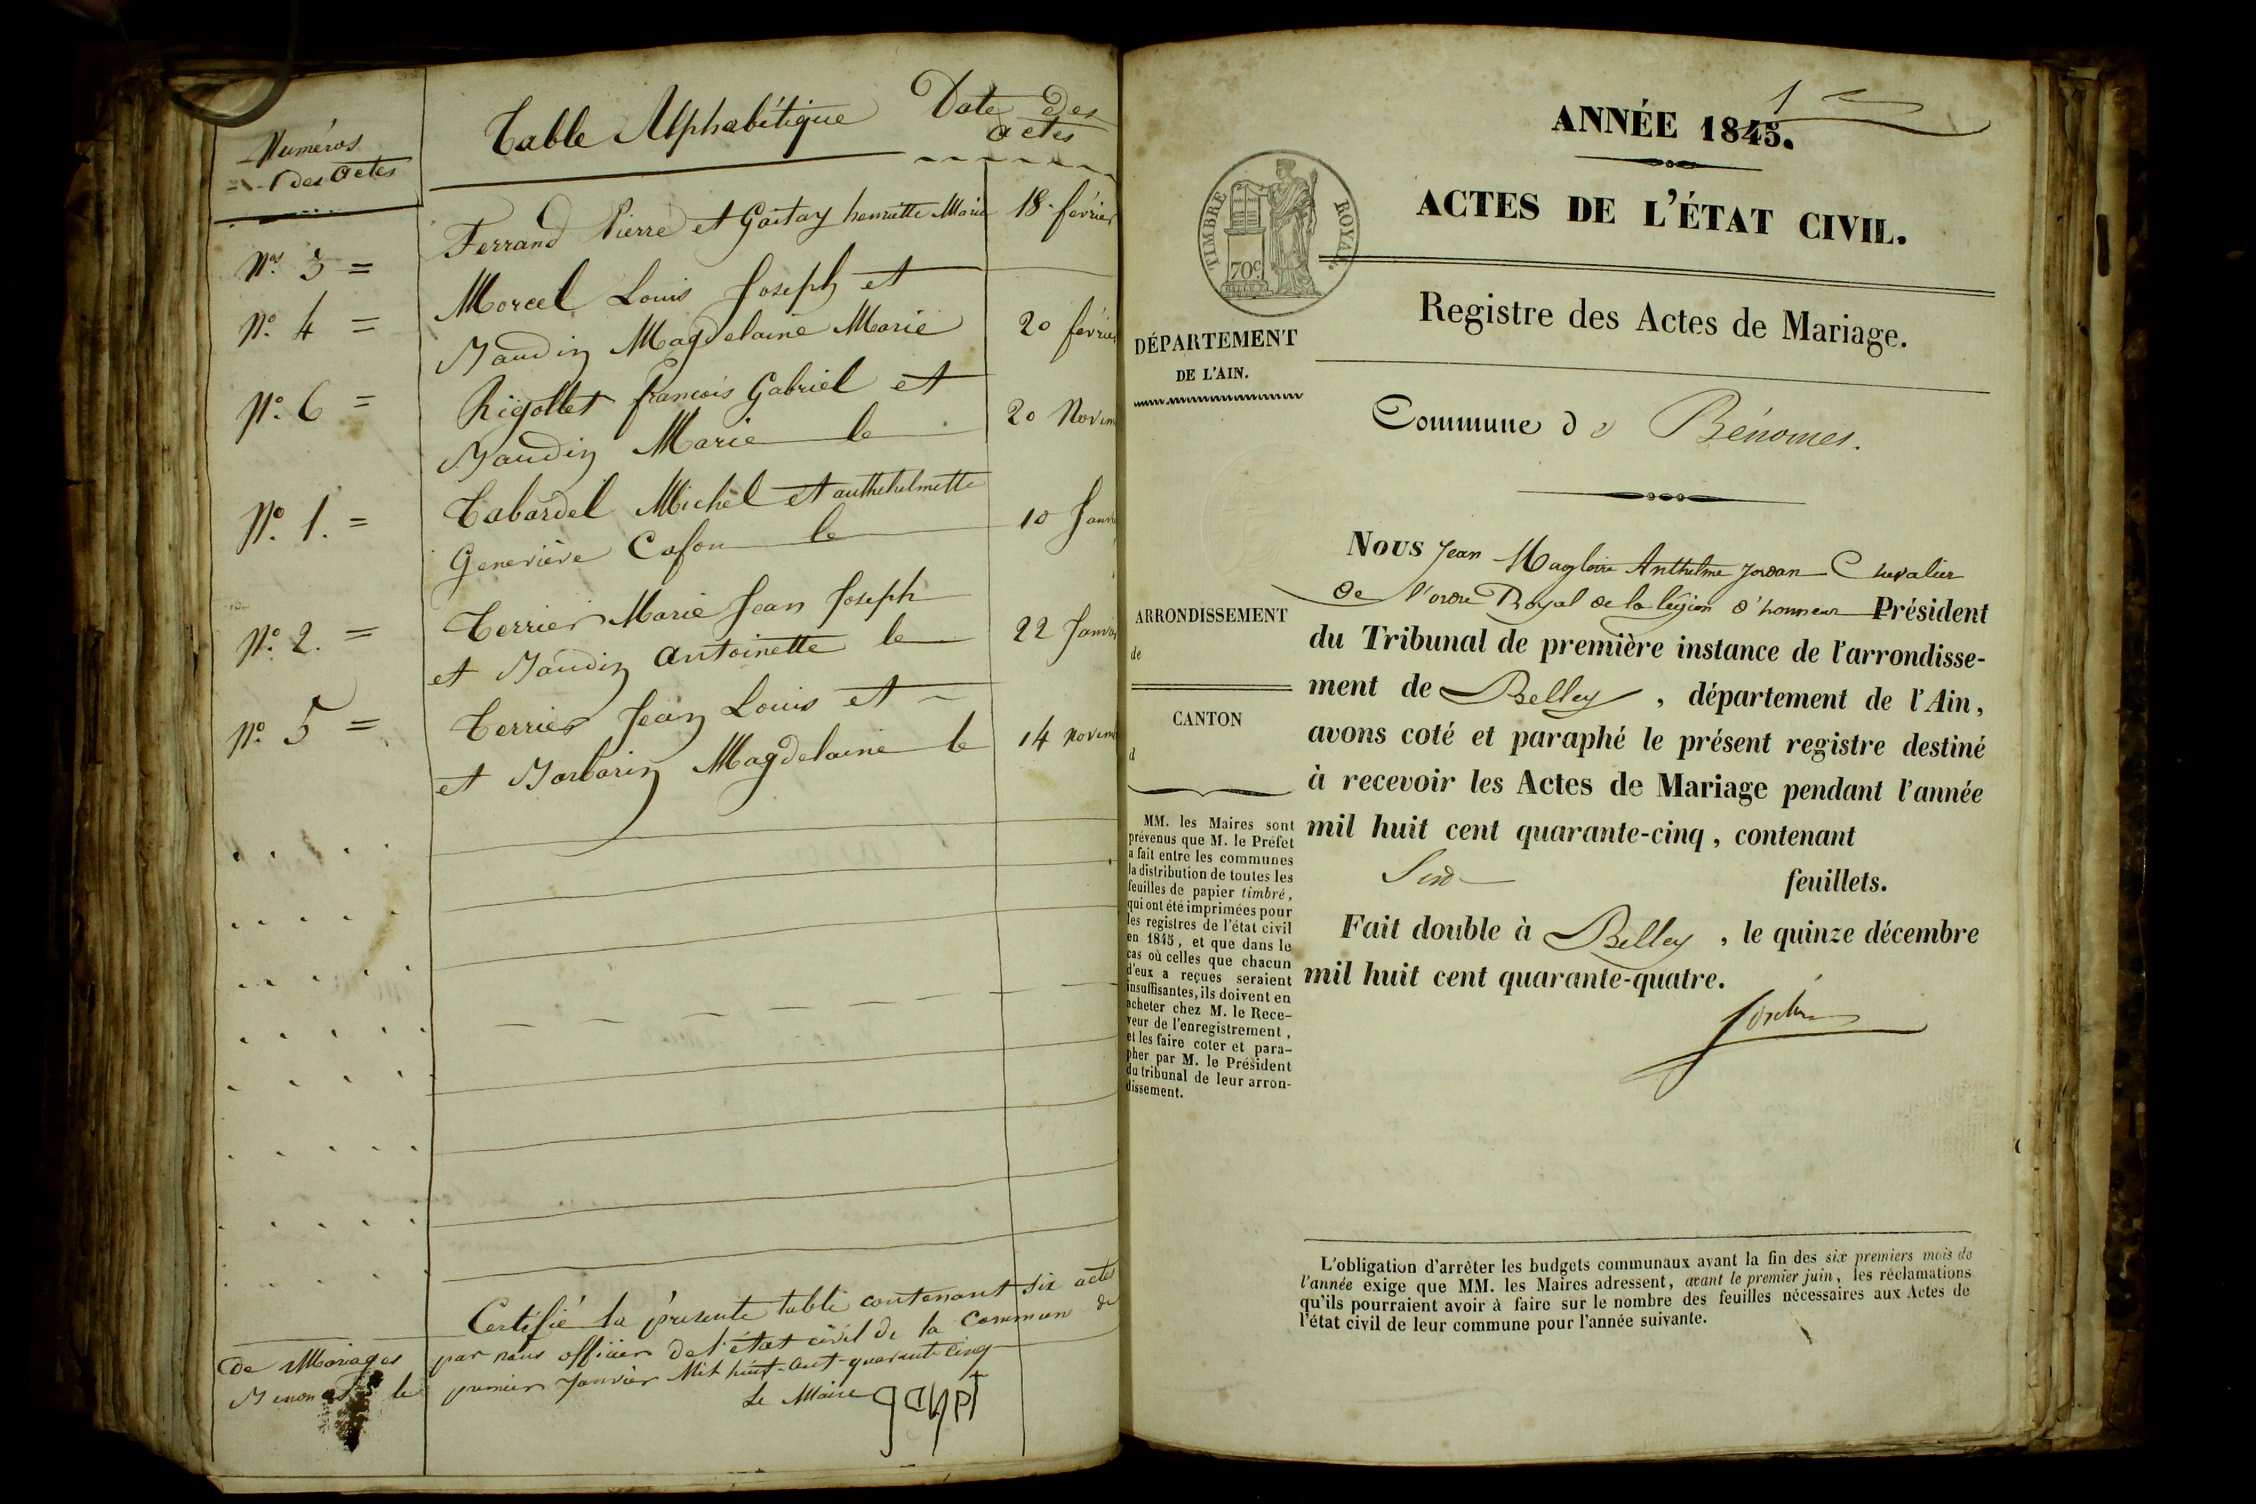 Numéros
des actes
Table Alphabétique
Date des
actes
N° 3 =
Ferrand Pierre et Goitay henriette Marie
18 février
N° 4 =
Morcel Louis Joseph et
Magdelaine Marie
20 février
N° 6 =
Rigollet francois Gabriel et
Marie le
20 Novem
N° 1. =
Tabardel Michel et authehelmette
Geneviève Cafon le
10 Janvi
N° 2. =
Terrier Marie Jean Joseph
et antoinette le
22 Janvie
N° 5 =
Terrier Jean Louis et
et Magdelaine le
14 Novem
Certifié la présente table contenant six actes
de Mariages par nous officier de l'état civil de la Commun de
le premier Janvier Mil huit-cent-quarante cinq
Le Maire
1
ANNÉE 1845.
ACTES DE L'ÉTAT CIVIL.
TIMBRE ROYAL
70c
Registre des Actes de Mariage.
DÉPARTEMENT
DE L'AIN.
Commune de Bénonces.
Nous Jean Magloire Anthelme Jordan Chevalier
de l'ordre Royal de la légion d'honneur Président
du Tribunal de première instance de l'arrondisse-
ment de Belley, département de l'Ain,
avons coté et paraphé le présent registre destiné
à recevoir les Actes de Mariage pendant l'année
mil huit cent quarante-cinq, contenant
feuillets.
Fait double à Belley, le quinze décembre
mil huit cent quarante-quatre.
ARRONDISSEMENT
de
CANTON
d
MM. les Maires sont
prévenus que M. le Préfet
a fait entre les communes
la distribution de toutes les
feuilles de papier timbré,
qui ont été imprimées pour
les registres de l'état civil
en 1845, et que dans le
cas où celles que chacun
d'eux a reçues seraient
insuffisantes, ils doivent en
acheter chez M. le Rece-
veur de l'enregistrement,
et les faire coter et para-
pher par M. le Président
du tribunal de leur arron-
dissement.
L'obligation d'arrêter les budgets communaux avant la fin des six premiers mois de
l'année exige que MM. les Maires adressent, avant le premier juin, les réclamations
qu'ils pourraient avoir à faire sur le nombre des feuilles nécessaires aux Actes de
l'état civil de leur commune pour l'année suivante.